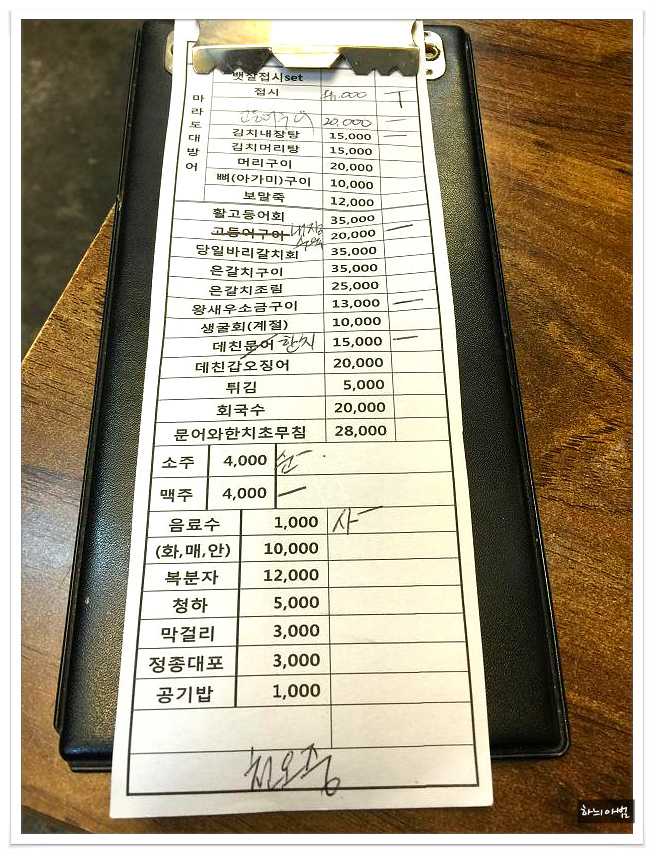 뱃살접시set
접시
마라도대방어
20,000
김치내장탕 15,000
김치머리탕 15,000
머리구이 20,000
뼈(아가미)구이 10,000
보말죽 12,000
활고등어회 35,000
고등어구이 내장수육 20,000
당일바리갈치회 35,000
은갈치구이 35,000
은갈치조림 25,000
왕새우소금구이 13,000 ー
생굴회(계절) 10,000
데친문어 한치 15,000 ー
데친갑오징어 20,000
튀김 5,000
회국수 20,000
문어와한치초무침 28,000
소주 4,000 순ー
맥주 4,000 ー
음료수 1,000 사ー
(화,매,안) 10,000
복분자 12,000
청하 5,000
막걸리 3,000
정종대포 3,000
공기밥 1,000
하늬아범